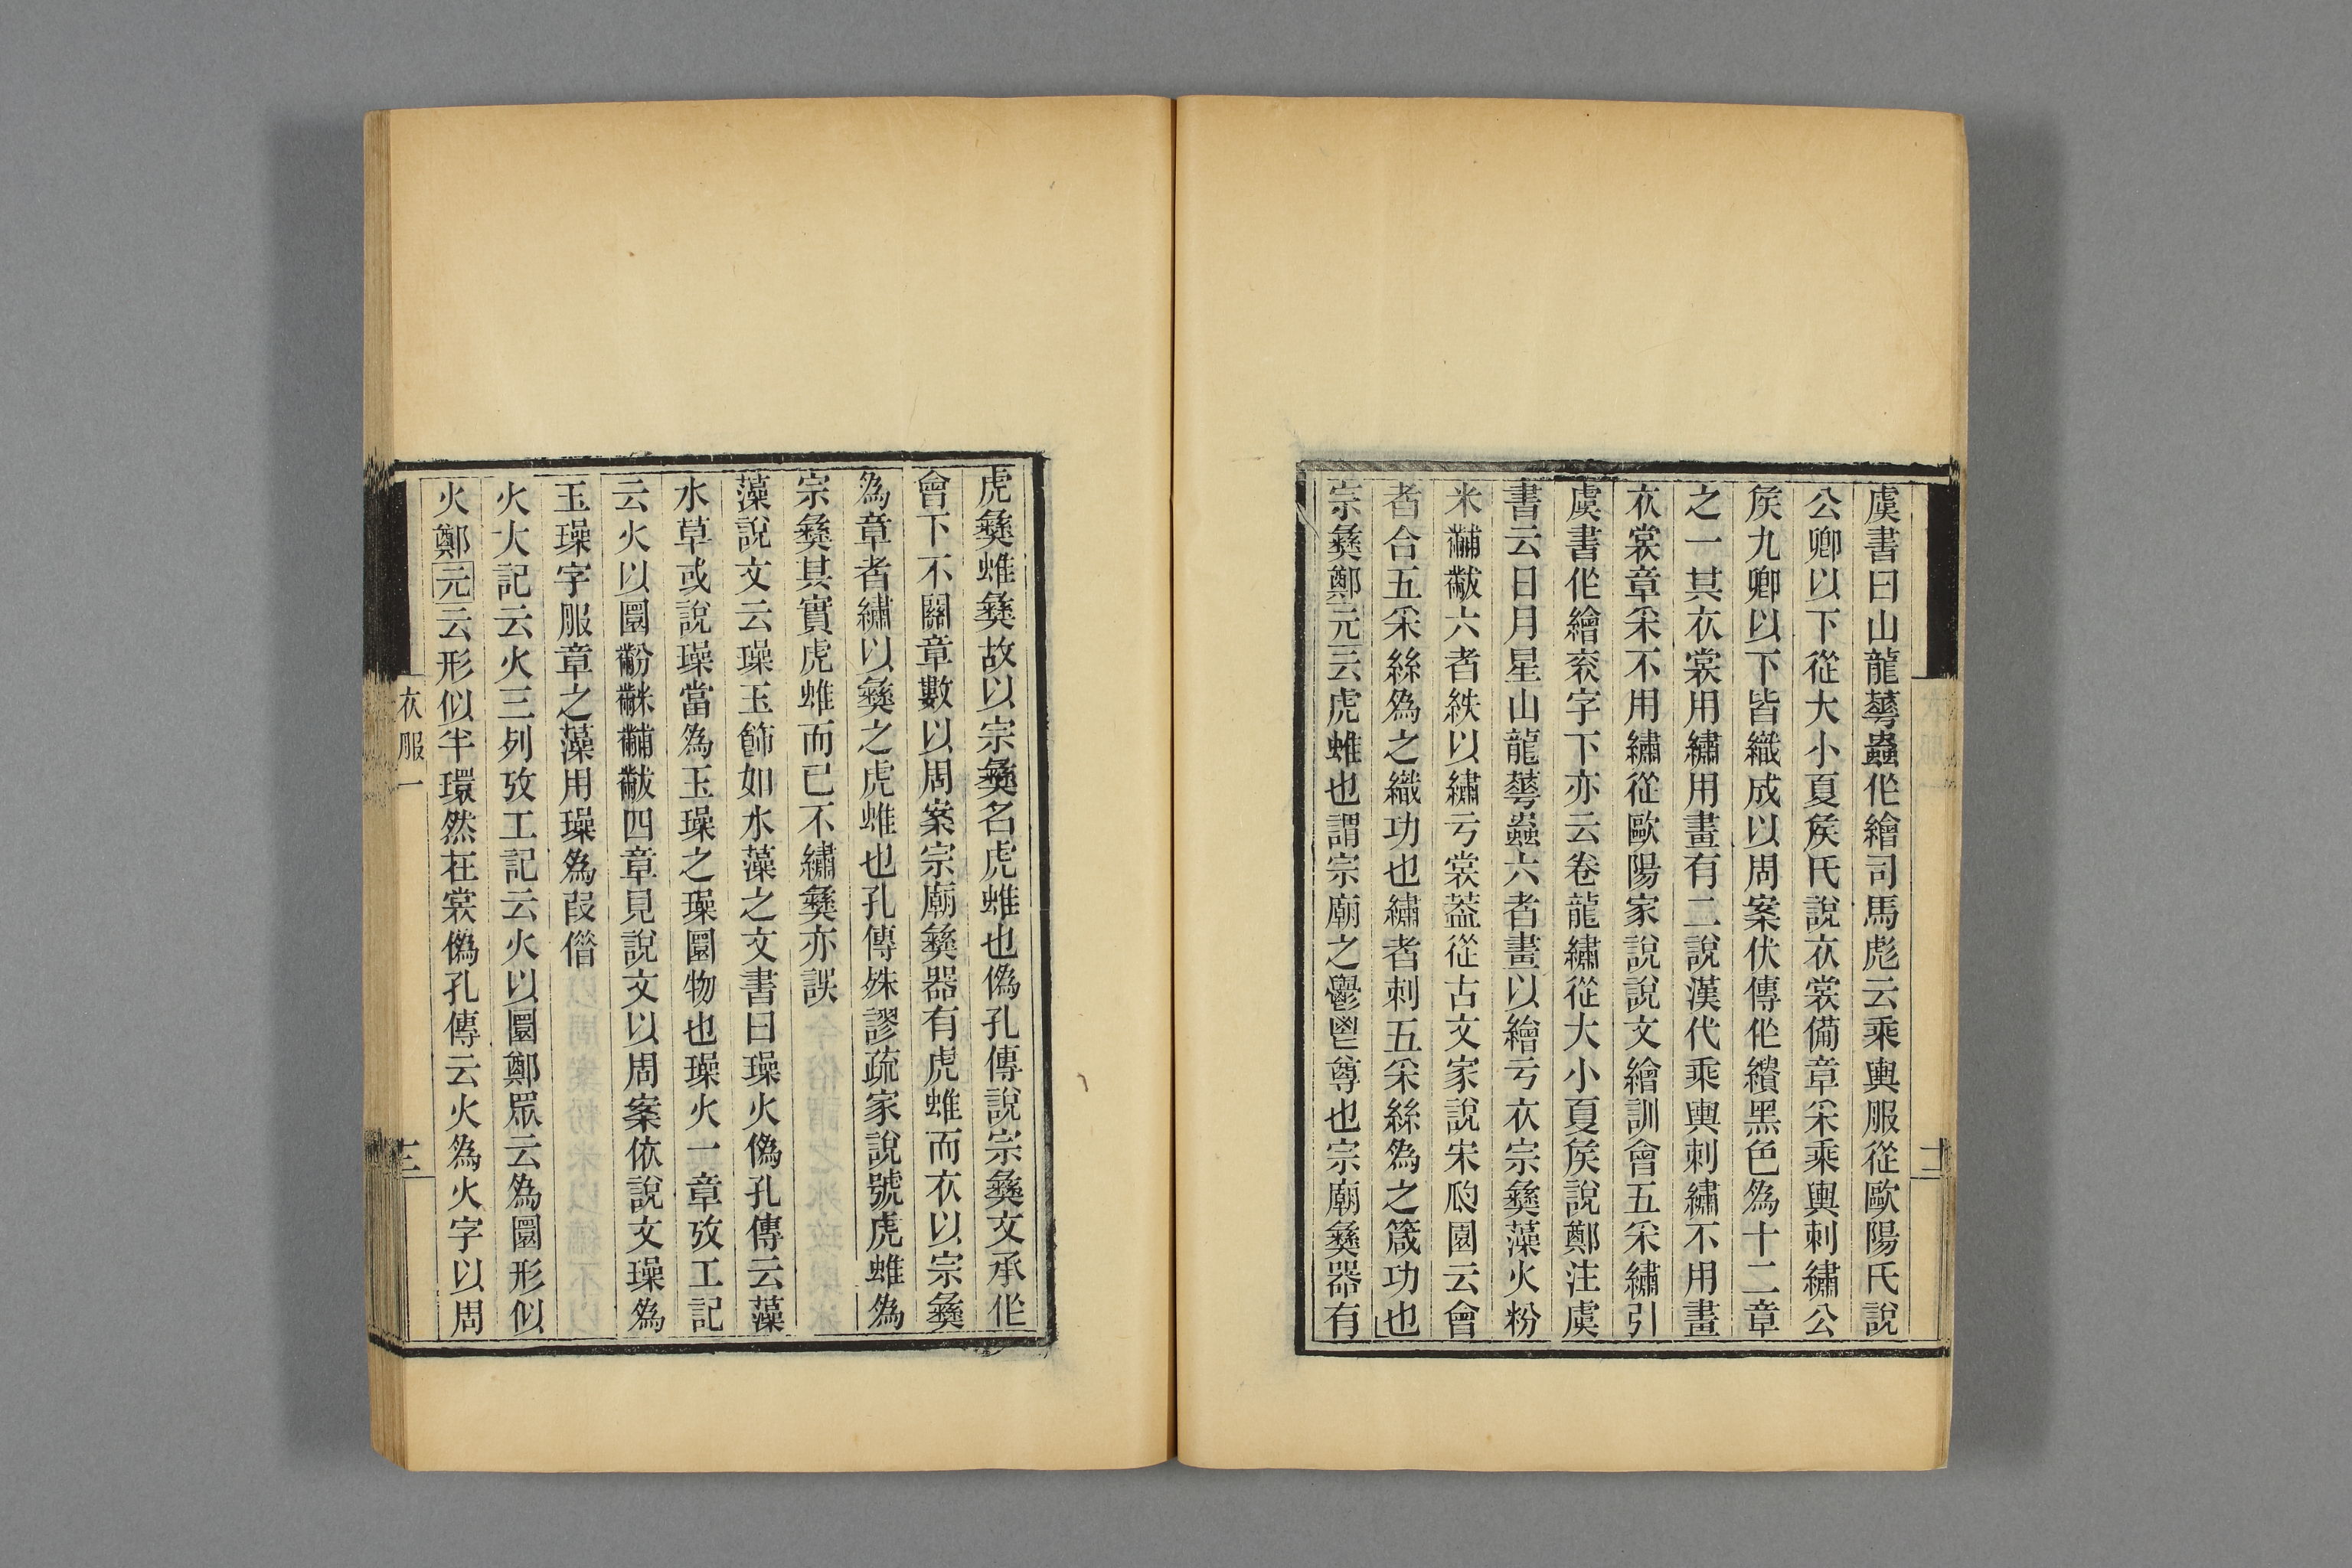 虞書曰山龍蕐蟲作繪司馬彪云乘輿服從歐陽氏說
公卿以下從大小夏矦氏說衣裳備章采乘輿刺繡公
矦九卿以下皆織成以周案伏傳作繢黑色為十二章
之一其衣裳用繡用畫有二說漢代乘輿刺繡不用畫
衣裳章采不用繡從歐陽家說說文繪訓會五采繡引
虞書作繪衮字下亦云卷龍繡從大小夏矦說鄭注虞
書云日月星山龍蕐蟲六者畫以繪亏衣宗彝藻火粉
米黼黻六者紩以繡亏裳葢從古文家說宋瓝園云會
者合五采絲為之織功也繡者刺五采絲為之箴功也
宗彝鄭元云虎蜼也謂宗廟之鬱鬯尊也宗廟彝器有
二
虎彝蜼彝故以宗彝名虎蜼也偽孔傳說宗彝文承作
會下不關章數以周案宗廟彝器有虎蜼而衣以宗彝
為章者繡以彝之虎蜼也孔傳殊謬疏家說號虎蜼為
宗彝其實虎蜼而已不繡彝亦誤
藻說文云璪玉飾如水藻之文書曰璪火偽孔傳云藻
水草或說璪當為玉璪之璪圜物也璪火一章攷工記
云火以圜黺䋛黼黻四章見說文以周案依說文璪為
玉璪字服章之藻用璪為叚僭
火大記云火三列攷工記云火以圜鄭眾云為圜形似
火鄭元云形似半環然在裳偽孔傳云火為火字以周
衣服一
三